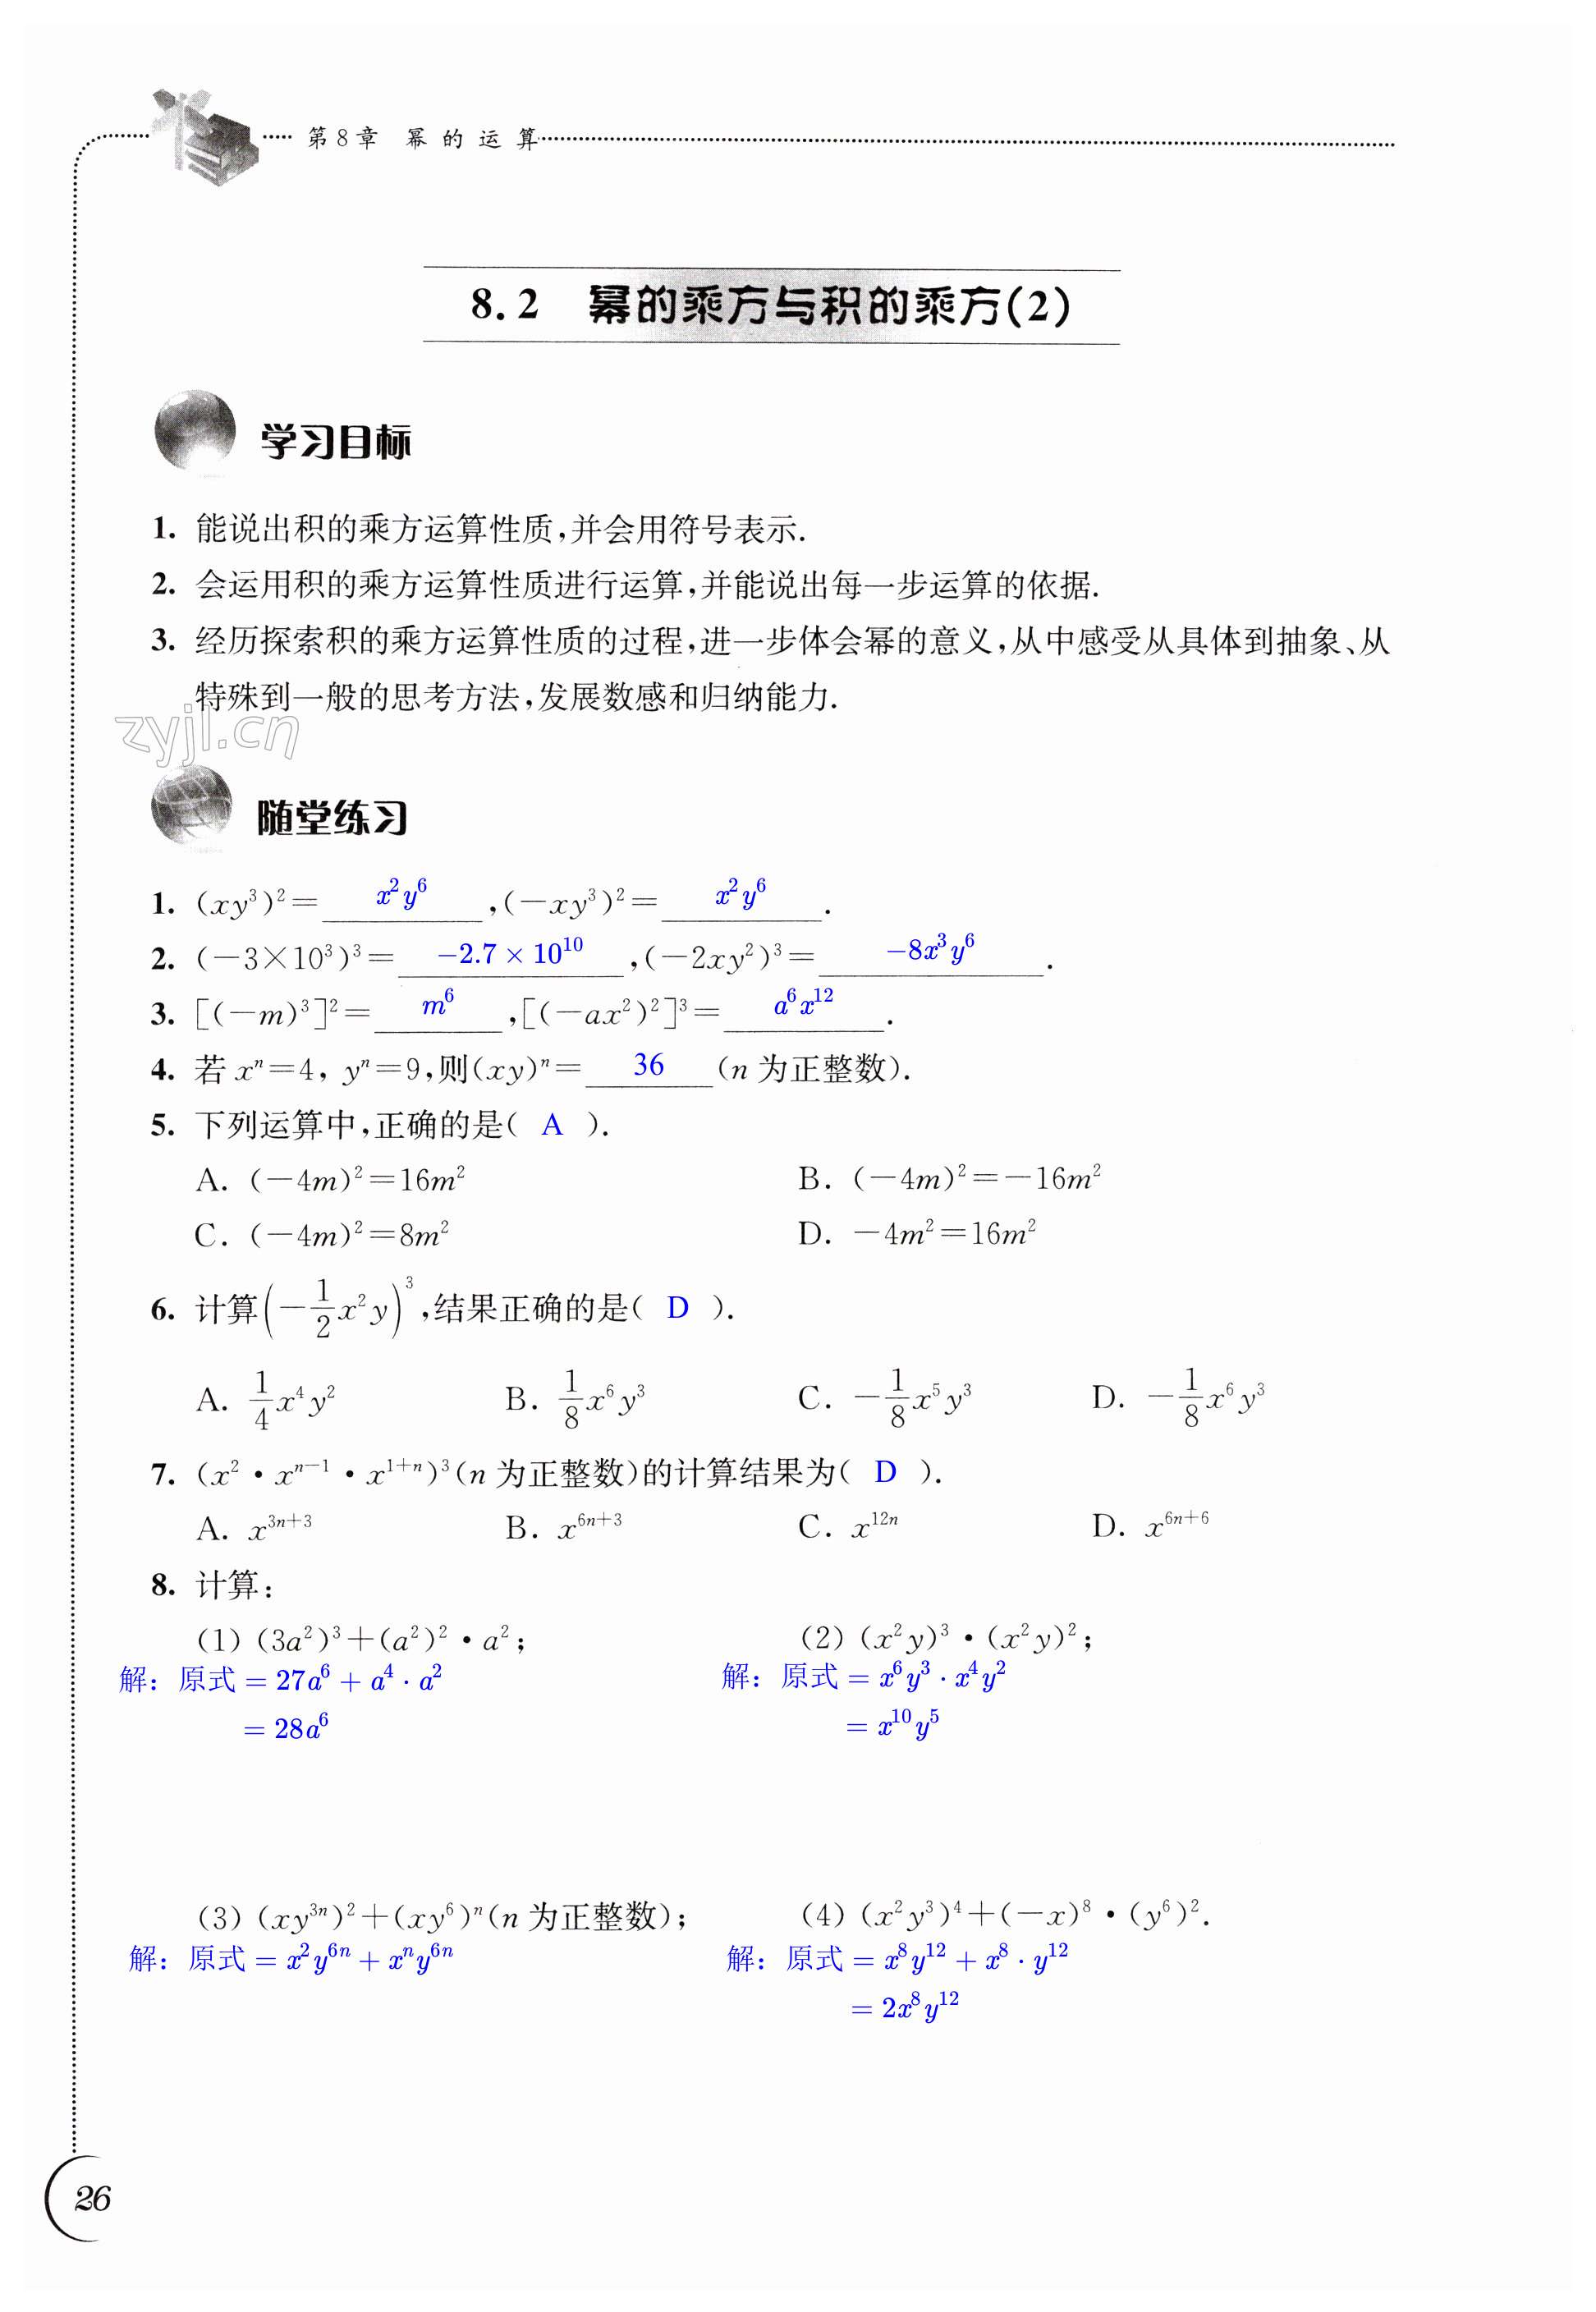 第8章 幂的运算
8.2 幂的乘方与积的乘方(2)
学习目标
1. 能说出积的乘方运算性质,并会用符号表示.
2. 会运用积的乘方运算性质进行运算,并能说出每一步运算的依据.
3. 经历探索积的乘方运算性质的过程,进一步体会幂的意义,从中感受从具体到抽象、从
特殊到一般的思考方法,发展数感和归纳能力.
zyjl.cn
随堂练习
1. (xy³)²= x²y⁶ ,(−xy³)²= x²y⁶ .
2. (−3×10³)³= −2.7 × 10¹⁰ ,(−2xy²)³= −8x³y⁶ .
3. [(−m)³]²= m⁶ ,[(−ax²)²]³= a⁶x¹² .
4. 若 xⁿ=4, yⁿ=9,则(xy)ⁿ= 36 (n 为正整数).
5. 下列运算中,正确的是( A ).
A. (−4m)²=16m² B. (−4m)²=−16m²
C. (−4m)²=8m² D. −4m²=16m²
6. 计算(−1/2 x²y)³,结果正确的是( D ).
A. 1/4 x⁴y² B. 1/8 x⁶y³ C. −1/8 x⁵y³ D. −1/8 x⁶y³
7. (x²·xⁿ⁻¹·x¹⁺ⁿ)³(n 为正整数)的计算结果为( D ).
A. x³ⁿ⁺³ B. x⁶ⁿ⁺³ C. x¹²ⁿ D. x⁶ⁿ⁺⁶
8. 计算:
(1) (3a²)³+(a²)²·a²; (2) (x²y)³·(x²y)²;
解:原式 = 27a⁶ + a⁴ · a² 解:原式 = x⁶y³ · x⁴y²
= 28a⁶ = x¹⁰y⁵
(3) (xy³ⁿ)²+(xy⁶)ⁿ(n 为正整数); (4) (x²y³)⁴+(−x)⁸·(y⁶)².
解:原式 = x²y⁶ⁿ + xⁿy⁶ⁿ 解:原式 = x⁸y¹² + x⁸ · y¹²
= 2x⁸y¹²
26